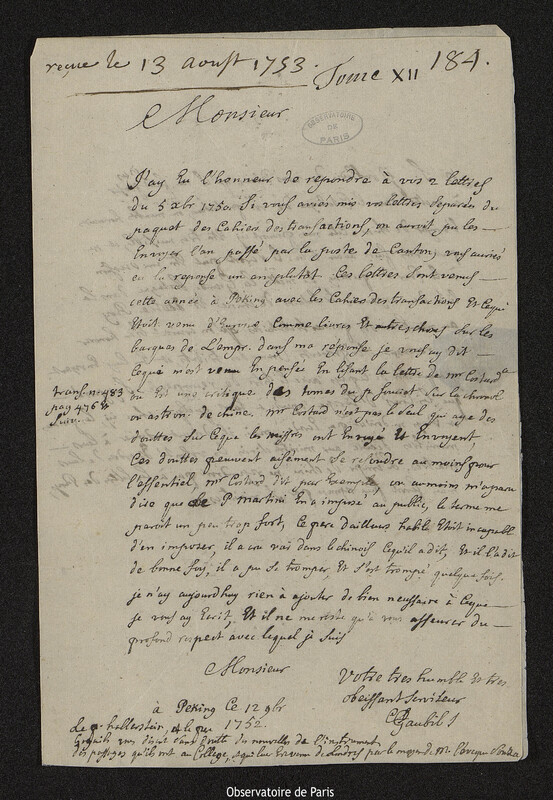 reçue le 13 aoust 1753. Tome XII 184.
Monsieur
OBSERVATOIRE DE PARIS
J'ay Eu l'honneur de repondre à vos 2 lettres
du 5 xbr 1750. Si vous aviés mis vos lettres separées du
paquet des Cahiers des transactions, on auroit pu les
Envoyer l'an passé par la poste de Canton, vous auriés
eu la reponse un an plutôt Ces lettres sont venues
cette année à Peking avec les Cahiers des transactions Et Ce qui
Etoit venu d'Europe comme livres Et autres choses sur les
barques de L'empr. dans ma réponse je vous ay dit
Ce que m'est venu En pensée En lisant la lettre de mr Costard
trans. n. 483
pag 476 Et
suiv.
où Est une critique des tomes du p. Souciet sur la chronol
ou astron. de chine. mr Costard n'est pas le seul qui aye des
douttes sur Ce que les missres ont Envoyé Et Envoyent
Ces douttes peuvent aisément se resoudre au moins pour
l'essentiel mr Costard dit par Exemple, ou au moins m'a paru
dire que le P martini En a imposé au public, le terme me
paroit un peu trop fort, Ce pere d'ailleurs habile Etoit incapable
d'en imposer, il a cru vrai dans le chinois Ce qu'il a dit, Et il l'a dit
de bonne foi, il a pu se tromper, Et s'est trompé quelque fois.
je n'ay aujourdhuy rien à ajouter de bien necessaire à Ce que
je vous ay Ecrit, Et il ne me reste qu'à vous asseurer du
profond respect avec lequel je suis
Monsieur
Votre tres humble Et tres
obeissant serviteur
à Peking Ce 12 9br
1752.
Gaubil S
Le p. hallerstein, et le pr
vous de nouvelles de l'instrument
qu'ils ont au College, par le moyen de mr.
Observatoire de Paris